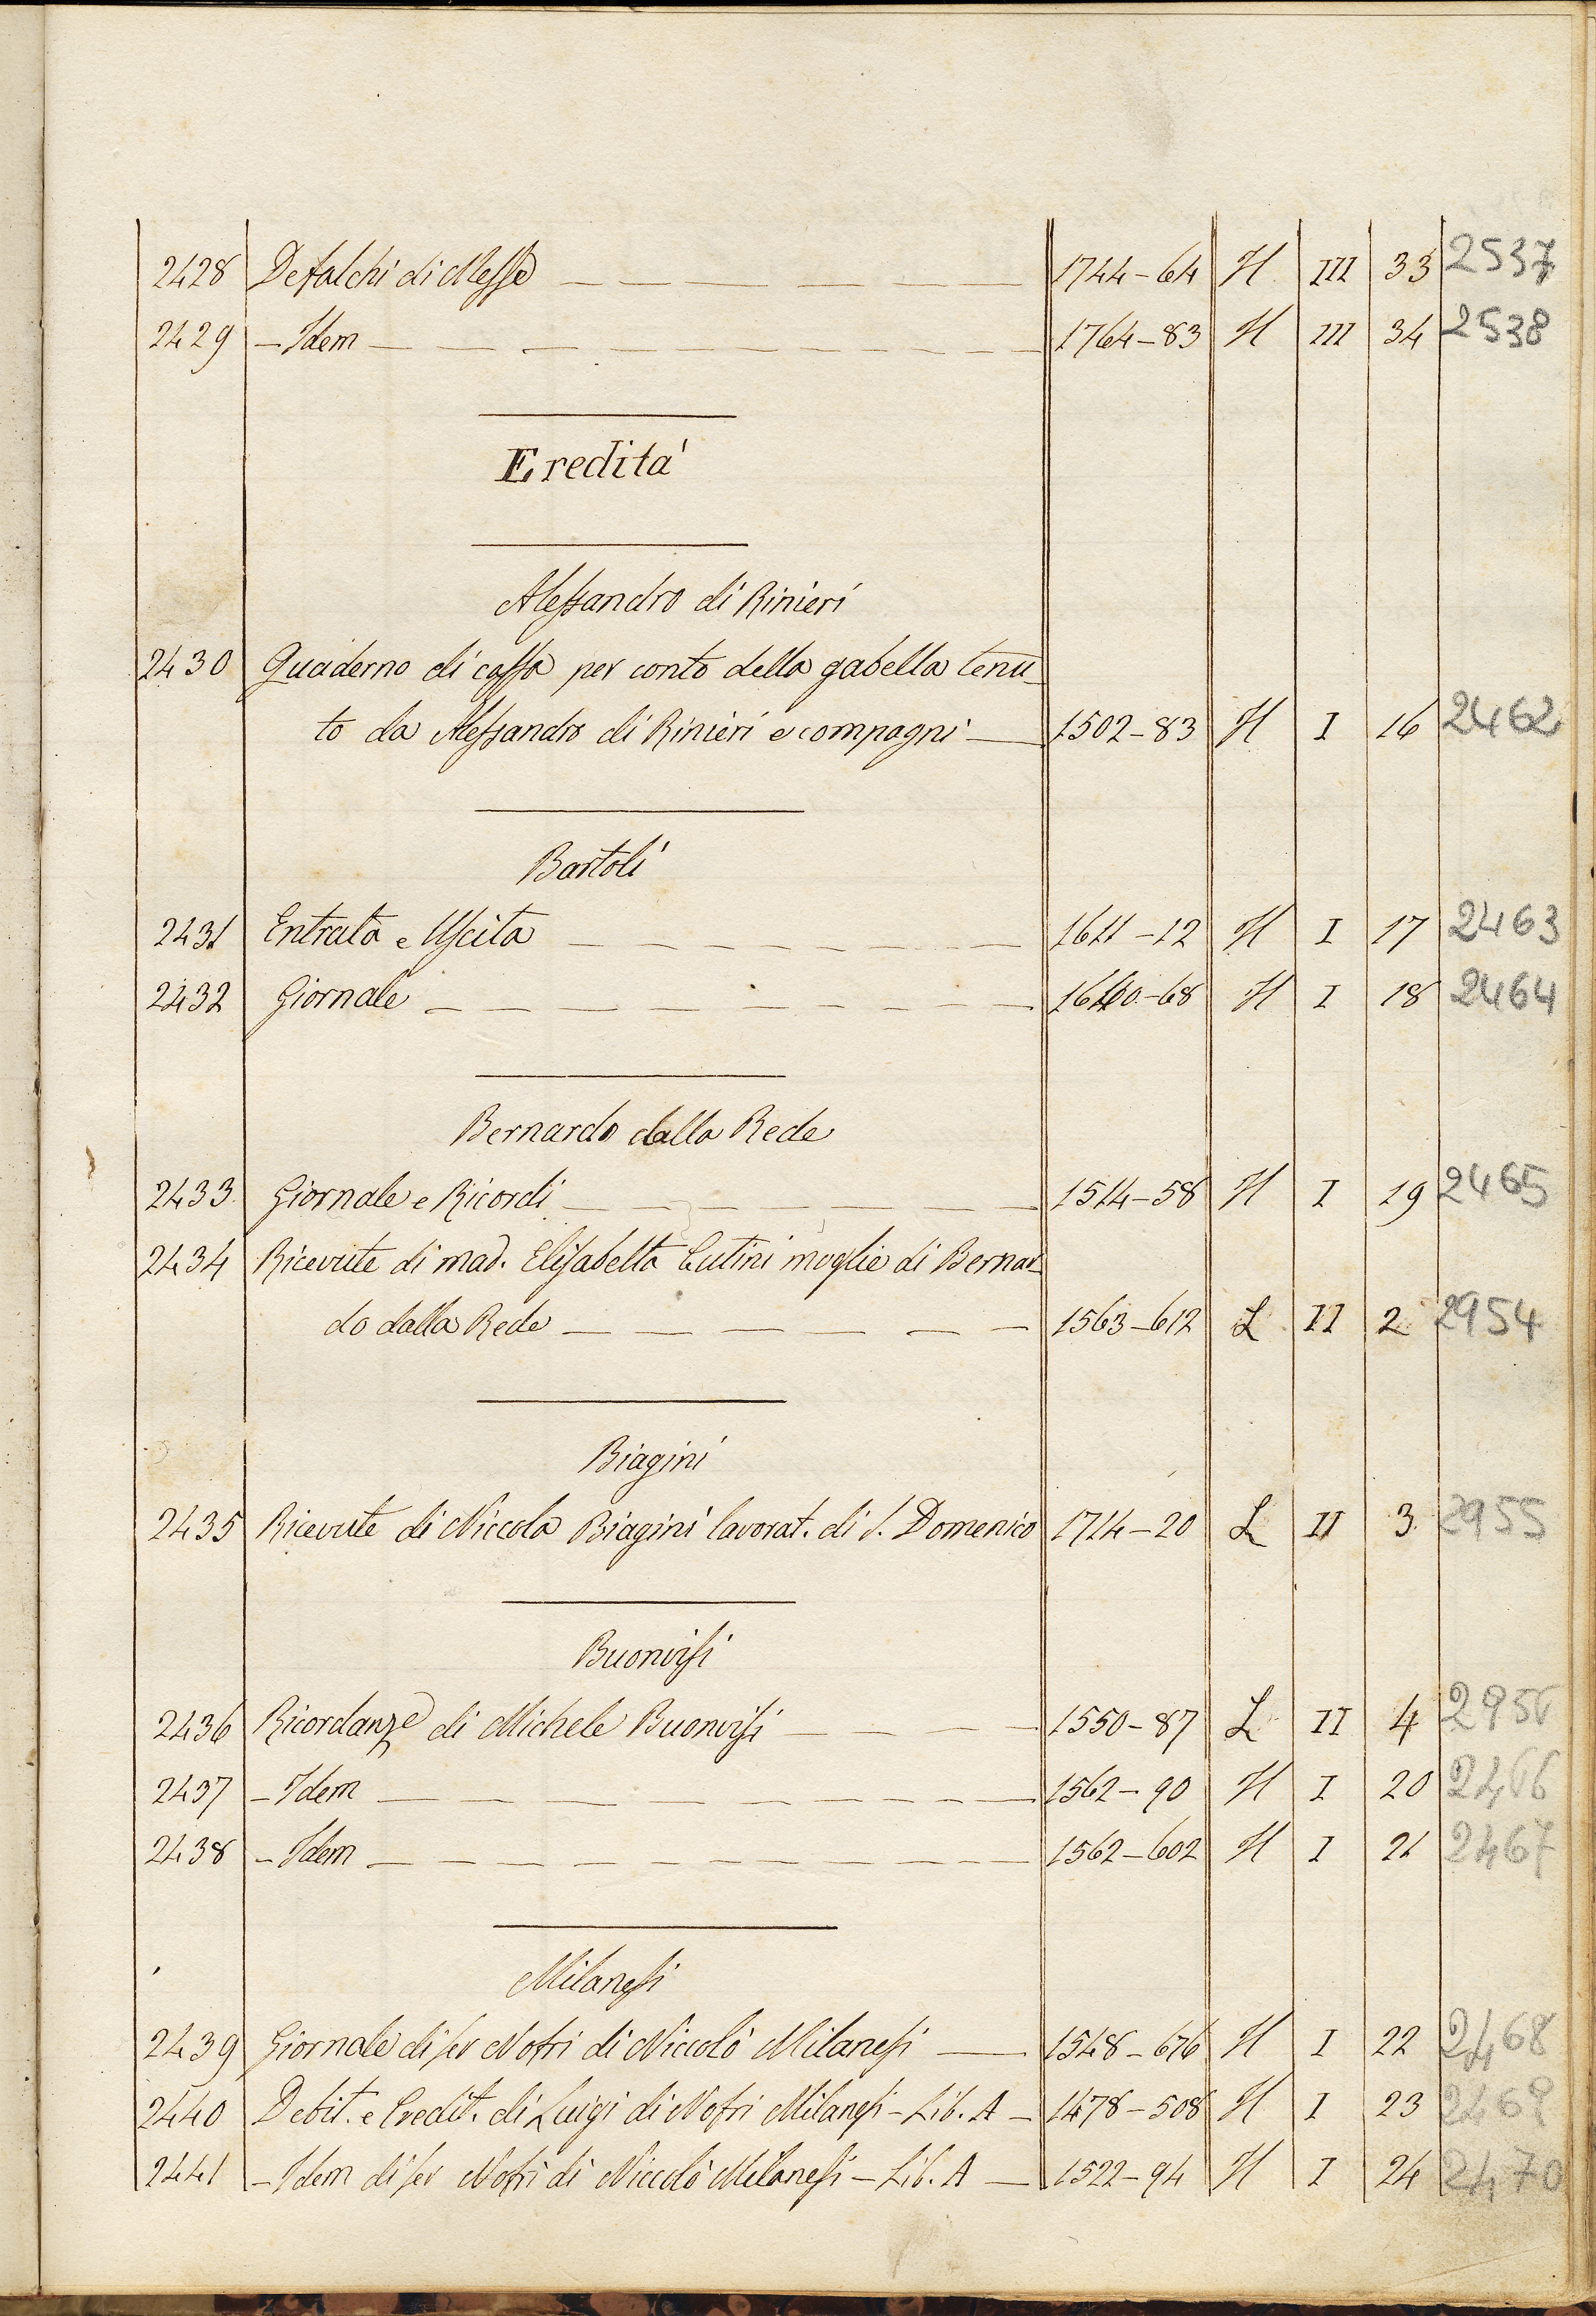 2428 Defalchi di Messe 1744-64 H III 33 2537
2429 - Idem 1764-83 H III 34 2538
Eredità
Alessandro di Rinieri
2430 Quaderno di cassa per conto della gabella tenu-
to da Alessandro di Rinieri e compagni 1502-83 H I 16 2462
Bartoli
2431 Entrata e Uscita 1611-12 H I 17 2463
2432 Giornale 1660-68 H I 18 2464
Bernardo dalla Rede
2433 Giornale e Ricordi 1514-58 H I 19 2465
2434 Ricevute di mad. Elisabetta Cutini moglie di Bernar-
do dalla Rede 1563-612 L II 2 2954
Biagini
2435 Ricevute di Niccola Biagini lavorat. di S. Domenico 1714-20 L II 3 2955
Buonvisi
2436 Ricordanze di Michele Buonvisi 1550-87 L II 4 2956
2437 - Idem 1562-90 H I 20 2466
2438 - Idem 1562-602 H I 21 2467
Milanesi
2439 Giornale di ser Nofri di Niccolò Milanesi 1548-676 H I 22 2468
2440 Debit. e Credit. di Luigi di Nofri Milanesi - Lib. A - 1478-508 H I 23 2469
2441 - Idem di ser Nofri di Niccolò Milanesi - Lib. A - 1522-94 H I 24 2470